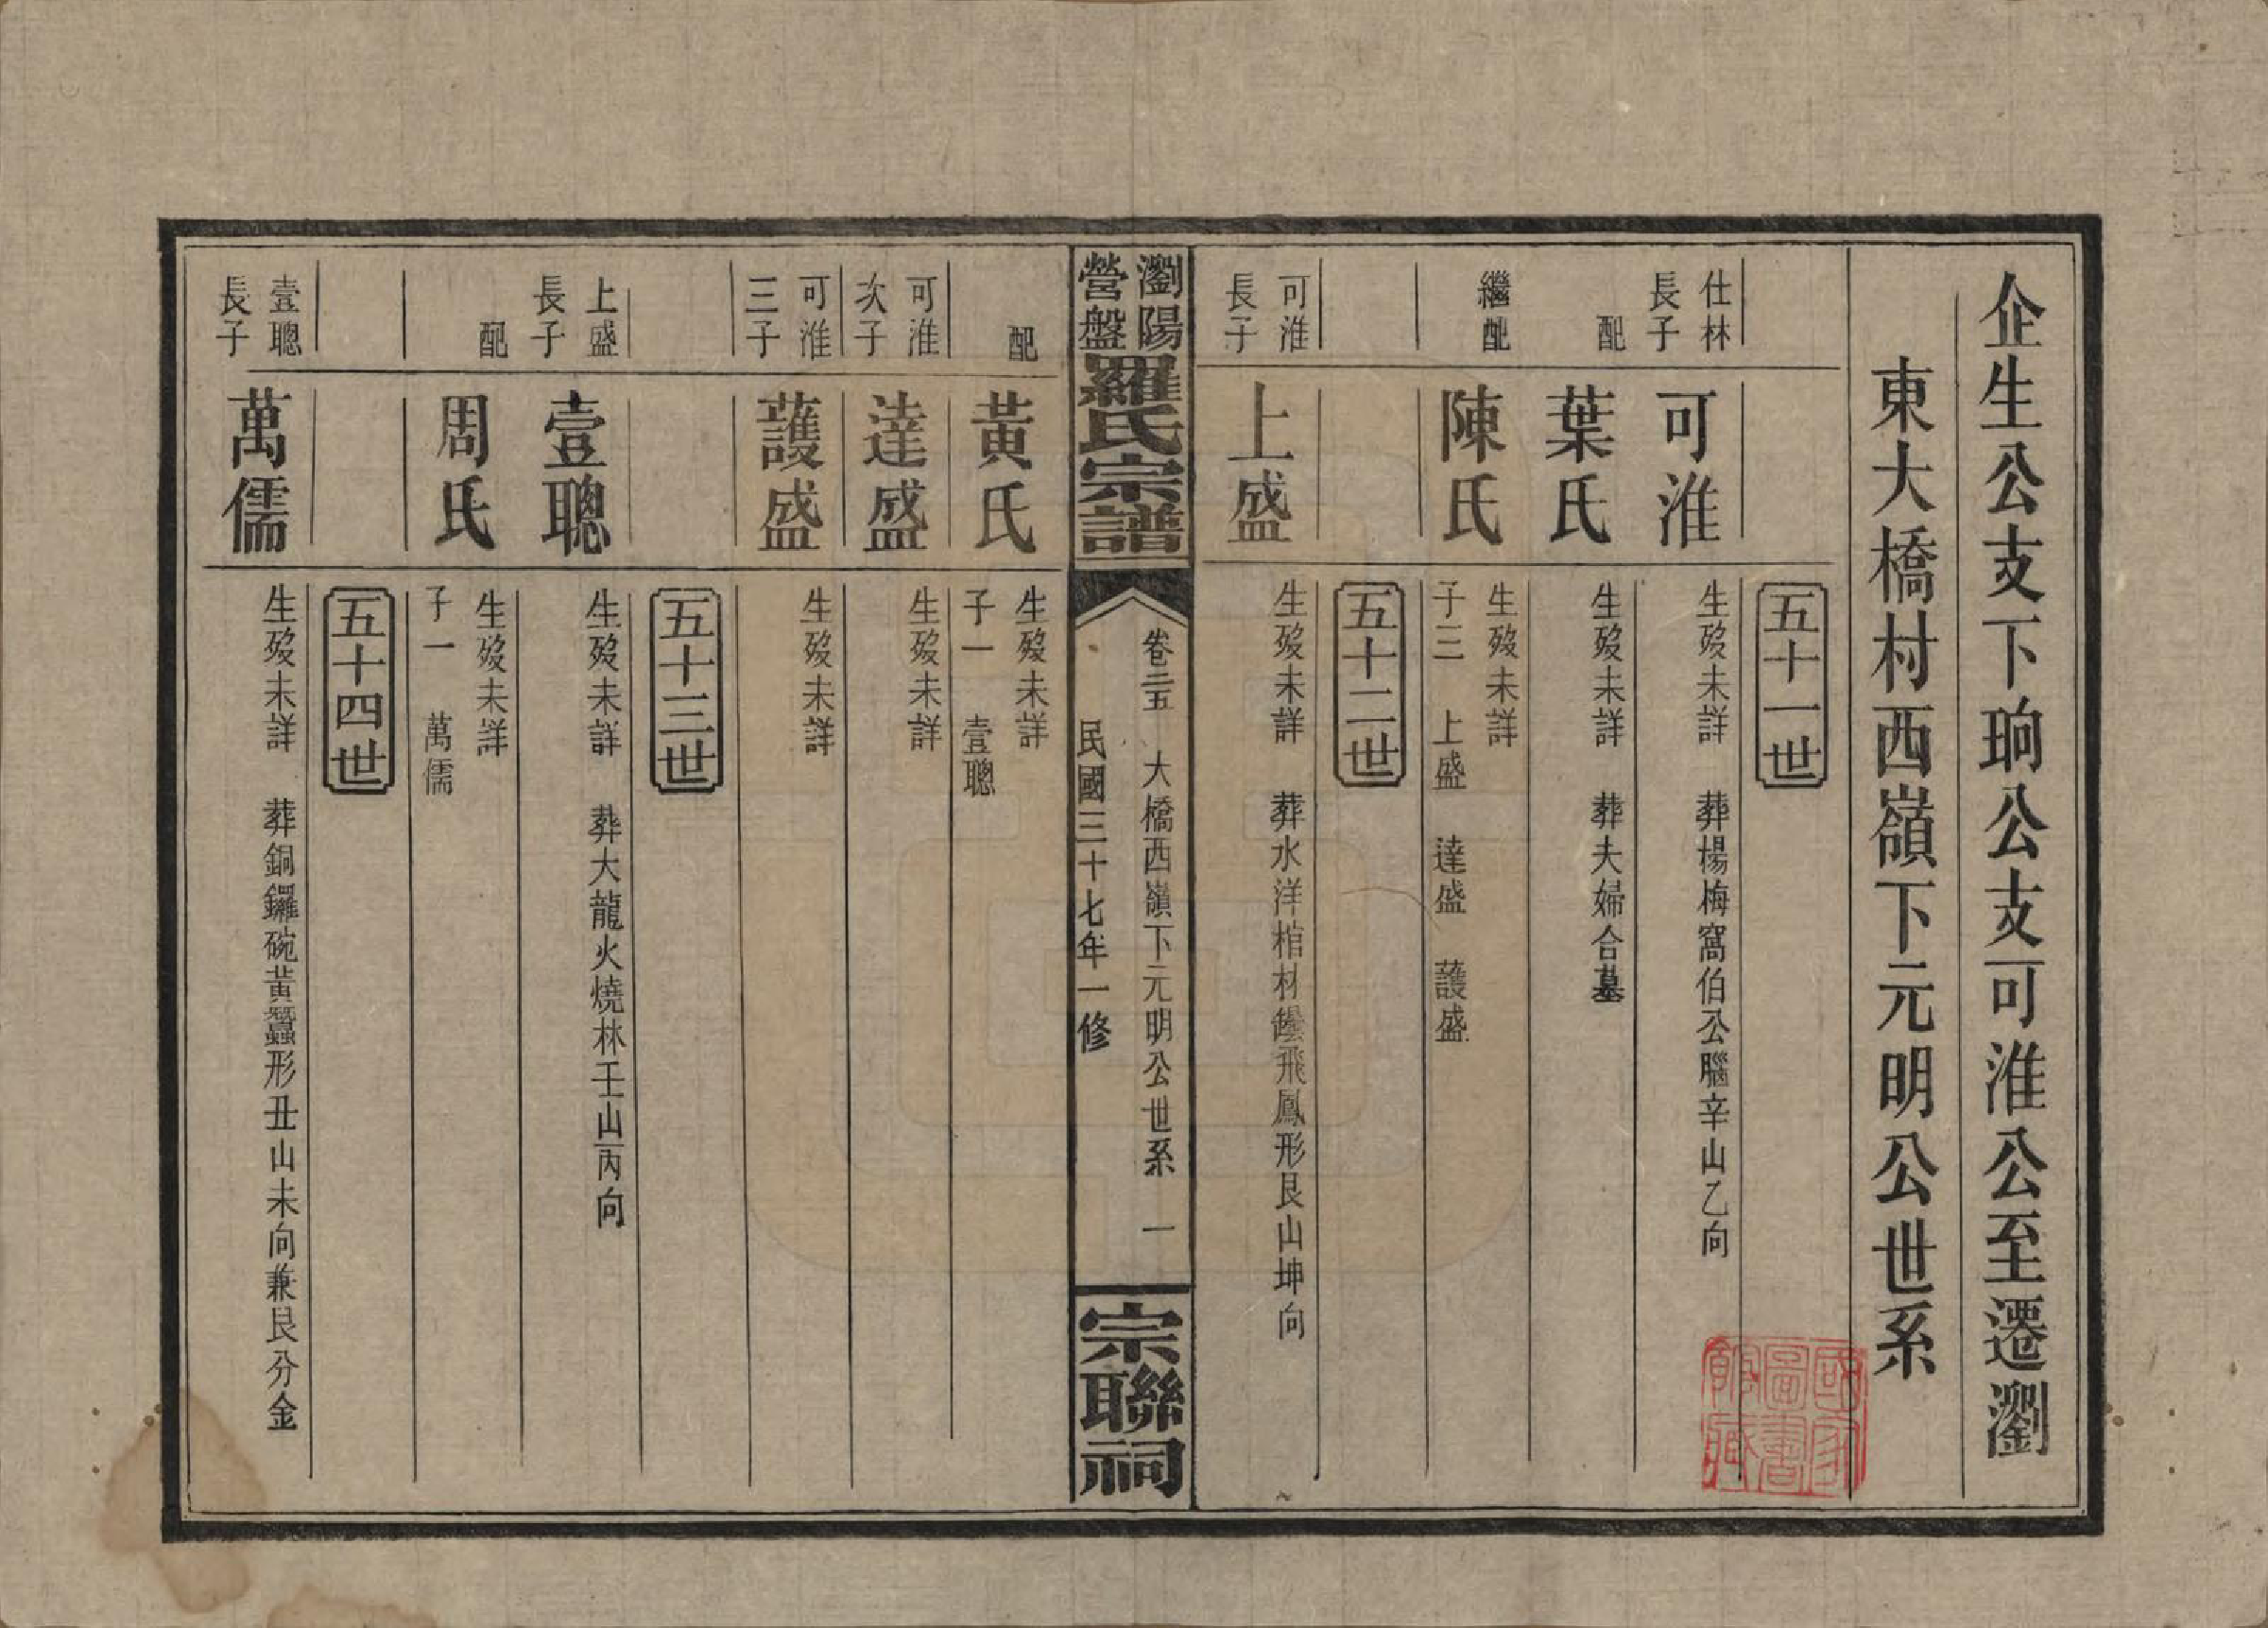 企生公支下珦公支可淮公至遷瀏
東大橋村西嶺下元明公世系
五十一世
仕林
長子
可淮
生歿未詳 葬楊梅窩伯公腦辛山乙向
配
葉氏
生歿未詳 葬夫婦合墓
繼配
陳氏
生歿未詳
子三 上盛 達盛 護盛
五十二世
可淮
長子
上盛
生歿未詳 葬水洋棺材飛鳳形艮山坤向
瀏陽
營盤
羅氏宗譜
卷二五 大橋西嶺下元明公世系 一
民國三十七年一修
宗聯祠
配
黃氏
生歿未詳
子一 壹聰
可淮
次子
達盛
生歿未詳
可淮
三子
護盛
生歿未詳
五十三世
上盛
長子
壹聰
生歿未詳 葬大龍火燒林壬山丙向
配
周氏
生歿未詳
子一 萬儒
五十四世
壹聰
長子
萬儒
生歿未詳 葬銅鑼碗黃蠶形丑山未向兼艮分金
國家
圖書
館藏